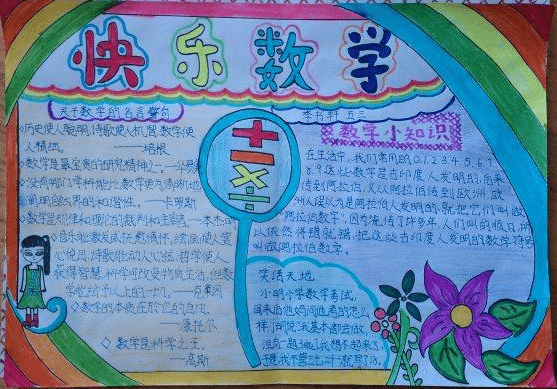 快乐数学
关于数学的名言警句
李书轩 五三
◇历史使人聪明,诗歌使人机智,数学使
人精细。 ——培根
◇数学是最宝贵的研究精神之一。—华罗庚
◇没有哪门学科能比数学更为清晰地
阐明自然界的和谐性。——卡罗斯
◇数学是规律和理论的裁判和主宰者。—本杰明
◇音乐能激发或抚慰情怀,绘画使人赏
心悦目,诗歌能动人心弦,哲学使人
获得智慧,科学可改变物质生活,但数
学能给予以上的一切。——克莱因
◇数学的本质在于它的自由。
——康托尔
◇数学是科学之王。
——高斯
+
-
×
÷
数学小知识
在生活中,我们常用的0.1.2.3.4.5.6.7
8.9这些数字是古印度人发明的,后来
传到阿拉伯,又从阿拉伯传到欧洲,欧
洲人误以为是阿拉伯人发明的,就把它们叫做
"阿拉伯数字",因为流传了许多年,人们叫的顺口,所
以依然将错就错,把这些古印度人发明的数字符号
叫做阿拉伯数字。
笑话天地
小明小学数学考试,
回来后他妈问他考的怎么
样?他说:我基本都会做,
但有一题3乘7,我想不起来了,
于是我不管三七二十一就写了18。